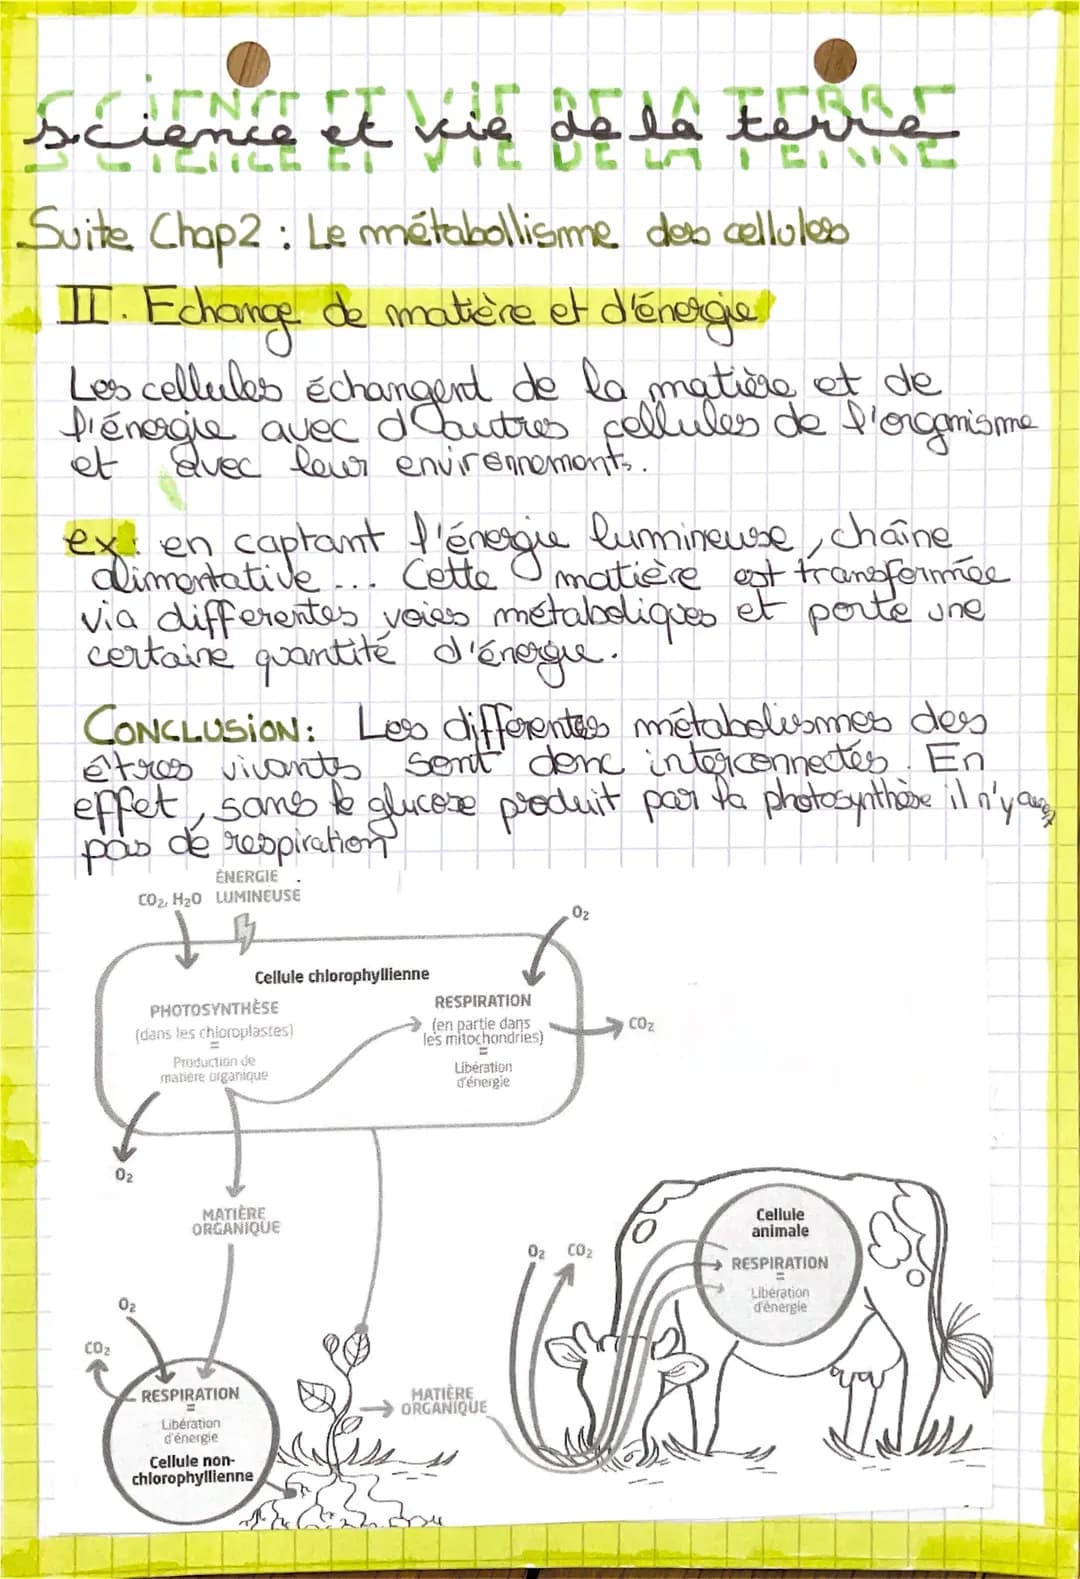 SCIENCE ET VIE DE LA TERRE
science et vie de la terre
Suite Chap2 : Le métabollisme des cellules
II. Echange de matière et d'énergie
Les cellules échangent de la matière et de
l'énergie avec d'autres cellules de l'organisme
et avec leur environnements.
ex: en captant l'énergie lumineuse, chaîne
alimentative... Cette matière est transformée
via differentes voies métaboliques et porte une
certaine quantité d'énergie.
CONCLUSION: Les differentes métabolismes des
êtres vivants sont donc interconnectés. En
effet, sans le glucose produit par la photosynthèse il n'y
pas de respiration
ÉNERGIE
CO2, H2O LUMINEUSE
O2
Cellule chlorophyllienne
PHOTOSYNTHÈSE
(dans les chloroplastes)
=
Production de
matière organique
RESPIRATION
(en partie dans
les mitochondries)
=
Libération
d'énergie
CO2
O2
MATIÈRE
ORGANIQUE
O2
CO2
RESPIRATION
=
Libération
d'énergie
Cellule non-
chlorophyllienne
MATIÈRE
ORGANIQUE
O2 CO2
Cellule
animale
RESPIRATION
=
Libération
d'énergie